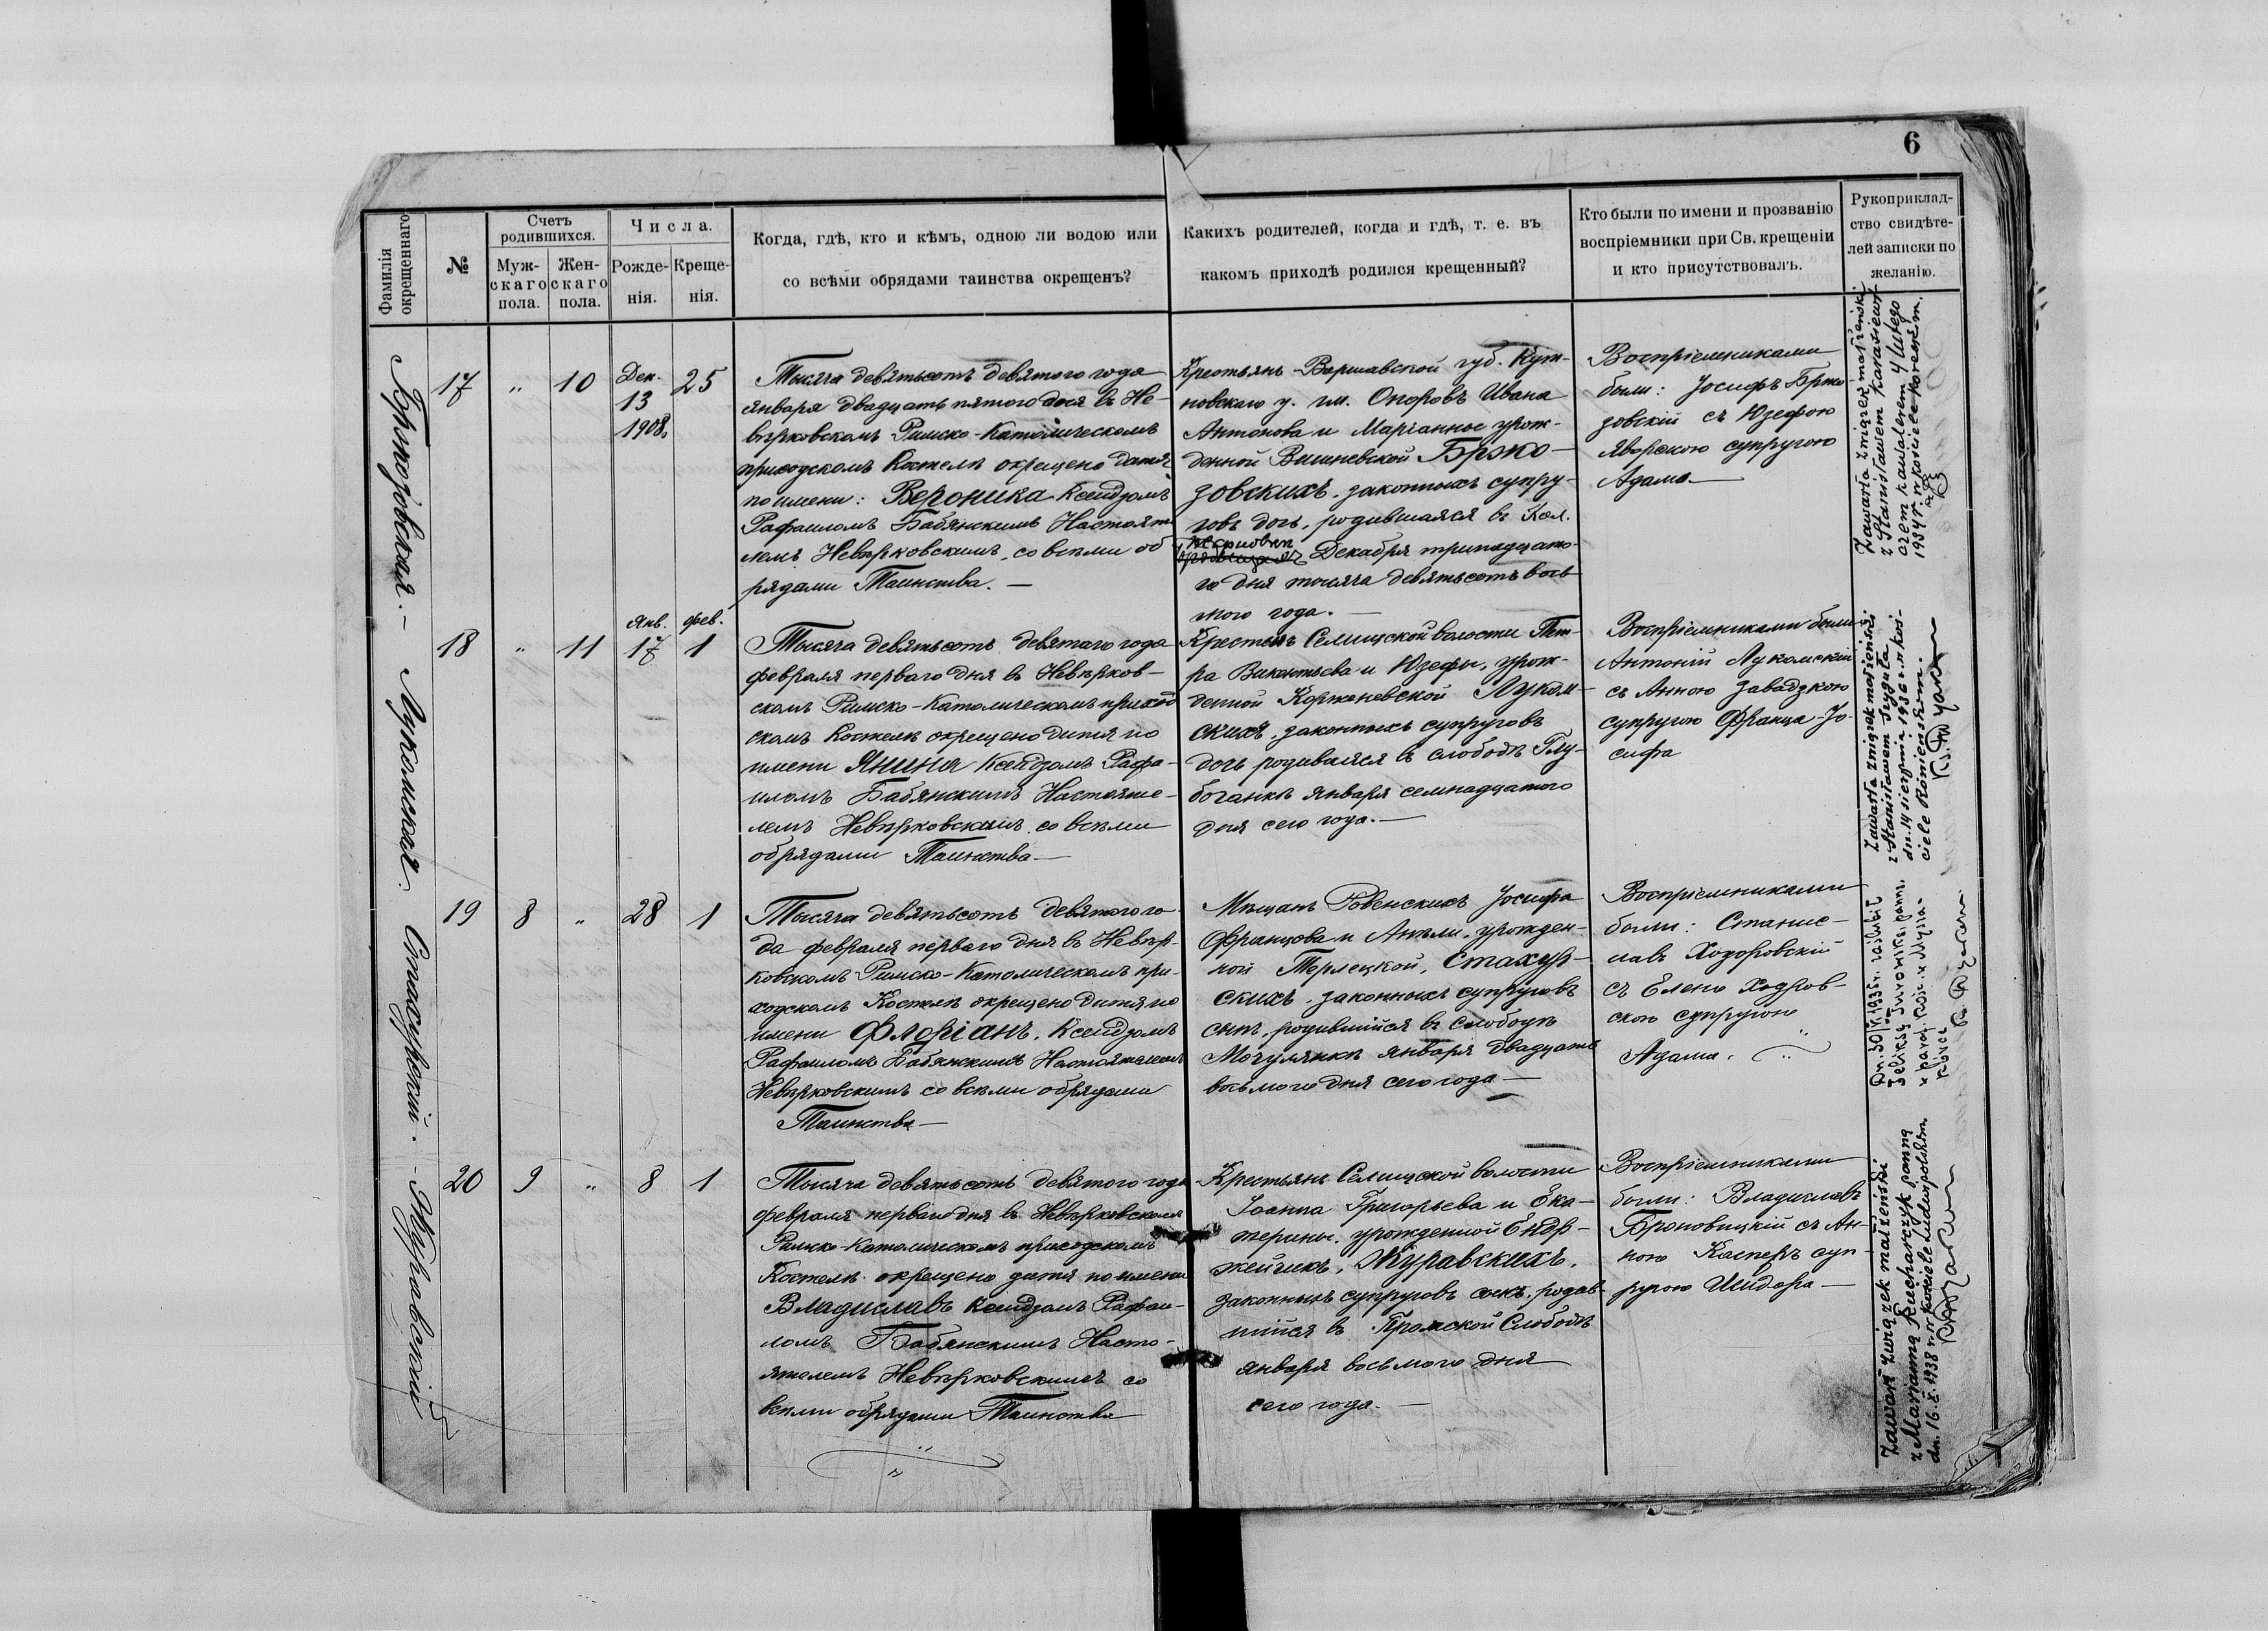 6
Фамилія окрещеннаго
№
Счетъ родившихся.
Муж-
скаго
пола.
Жен-
скаго
пола.
Числа.
Рожде-
нія.
Креще-
нія.
Когда, гдѣ, кто и кѣмъ, одною ли водою или
со всѣми обрядами таинства окрещенъ?
Какихъ родителей, когда и гдѣ, т. е. въ
какомъ приходѣ родился крещенный?
Кто были по имени и прозванію
воспріемники при Св. крещеніи
и кто присутствовалъ.
Рукоприклад-
ство свидѣте-
лей записки по
желанію.
17
"
10
Дек.
13
1908.
25
Тысяча девятьсотъ девятого года
января двадцать пятого дня въ Не-
вѣрковскомъ Римско-Католическомъ
приходскомъ Костелѣ окрещено дитя
по имени: Вероника Ксендзомъ
Рафаиломъ Бабянскимъ Настояте
лемъ Невѣрковскимъ, со всѣми об
рядами Таинства. —
Крестьянъ Варшавской губ. Кут-
новскаго у. гм. Опоровъ Ивана
Антонова и Маріанны урож-
денной Вишневской Бржо-
зовскихъ, законныхъ супру-
говъ дочь, родившаяся в Кол.
Декабря тринадцато-
го дня тысяча девятьсотъ вось
мого года. —
Воспріемниками
были: Іосифъ Бржо
зовскій съ Юзефою
Яворскою супругою
Адама —
Zawarła związek małżeński
z Stanisławem Karasiewi-
czem kawalerem 4 lutego
1934 r. w kościele koreckim.
18
"
11
Янв.
17
фев.
1
Тысяча девятьсотъ девятаго года
февраля перваго дня въ Невѣрков-
скомъ Римско-Католическомъ приход
скомъ Костелѣ окрещено дитя по
имени Янина Ксендзомъ Рафа-
иломъ Бабянскимъ Настояте-
лемъ Невѣрковскимъ со всѣми
обрядами Таинства —
Крестьянъ Селищской волости Пет-
ра Викентьева и Юзефы, урож-
денной Корженевской Луком-
скихъ, законныхъ супруговъ
дочь родившаяся въ слободѣ Глу-
бочанкѣ января семнадцатого
дня сего года. —
Воспріемниками были
Антоній Лукомскій
съ Анною Завадзкою
супругою Франца-Іо-
сифа
Zawarła związek małżeński
z Stanisławem Szygułą
dn. 14 sierpnia 1936 r. w koś-
ciele Rówieńskim.
19
8
"
28
1
Тысяча девятьсотъ девятого го
да февраля перваго дня въ Невѣр-
ковскомъ Римско-Католическомъ при-
ходскомъ Костелѣ окрещено дитя по
имени Флоріанъ, Ксендзомъ
Рафаиломъ Бабянскимъ Настоятелемъ
Невѣрковскимъ со всѣми обрядами
Таинства —
Мѣщанъ Ровенскихъ Іосифа
Францова и Анѣли, урожден-
ной Терлецкой, Стахур-
скихъ, законныхъ супруговъ
сынъ, родившійся въ слободѣ
Мочулянкѣ января двадцать
восьмого дня сего года —
Воспріемниками
были: Станис-
лавъ Ходоровскій
съ Елено Ходров-
скою супругою
Адама.
20
9
"
8
1
Тысяча девятьсотъ девятого года
февраля перваго дня въ Невѣрковскомъ
Римско-Католическомъ приходскомъ
Костелѣ окрещено дитя по имени
Владиславъ Ксендзомъ Рафаи-
ломъ Бабянскимъ Насто-
ятелемъ Невѣрковскимъ со
всѣми обрядами Таинства
Крестьянъ Селищской волости
Іоанна Григорьева и Ека-
терины, урожденной Ендр-
жейчикъ, Журавскихъ,
законныхъ супруговъ сынъ, родив-
шійся въ Слободѣ
января восьмого дня
сего года. —
Воспріемниками
были: Владиславъ
Броновицкій съ Ан-
ною Касперъ суп-
ругою Исидора —
Zawarł związek małżeński
z Marianną Kucharczyk panną
dn. 16. X. 1938 r. w kościele ludwipolskim
Бржозовская. — Лукомская. Стахурскій. — Журавскій